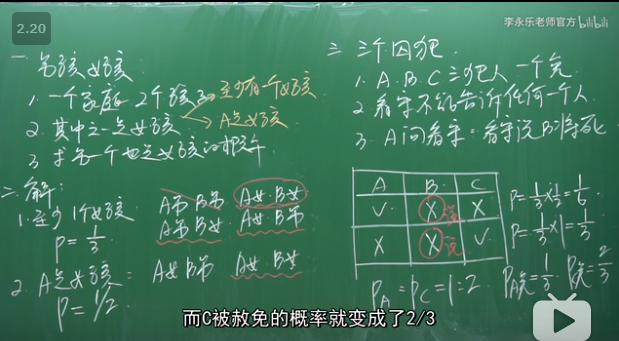 2.20
李永乐老师官方 bilibili
一 男孩女孩
1. 一个家庭 2个孩子
至少有一个女孩
2. 其中之一是女孩
A是女孩
3. 求另一个也是女孩的概率
二 解:
1. 至少1个女孩
P=1/3
A男B男 A女B女
A男B女 A女B男
2. A是女孩:
P=1/2
A女B男 A女B女
三 三个囚犯
1. A.B.C三犯人 一个免
2. 看守不能告诉任何一个人
3. A问看守: 看守说B将死
A B C
✓ X说 X
X X说 ✓
P=1/3×1/2=1/6
P=1/3×1=1/3
PA:PC=1:2
PA免=1/3 PC免=2/3
而C被赦免的概率就变成了2/3